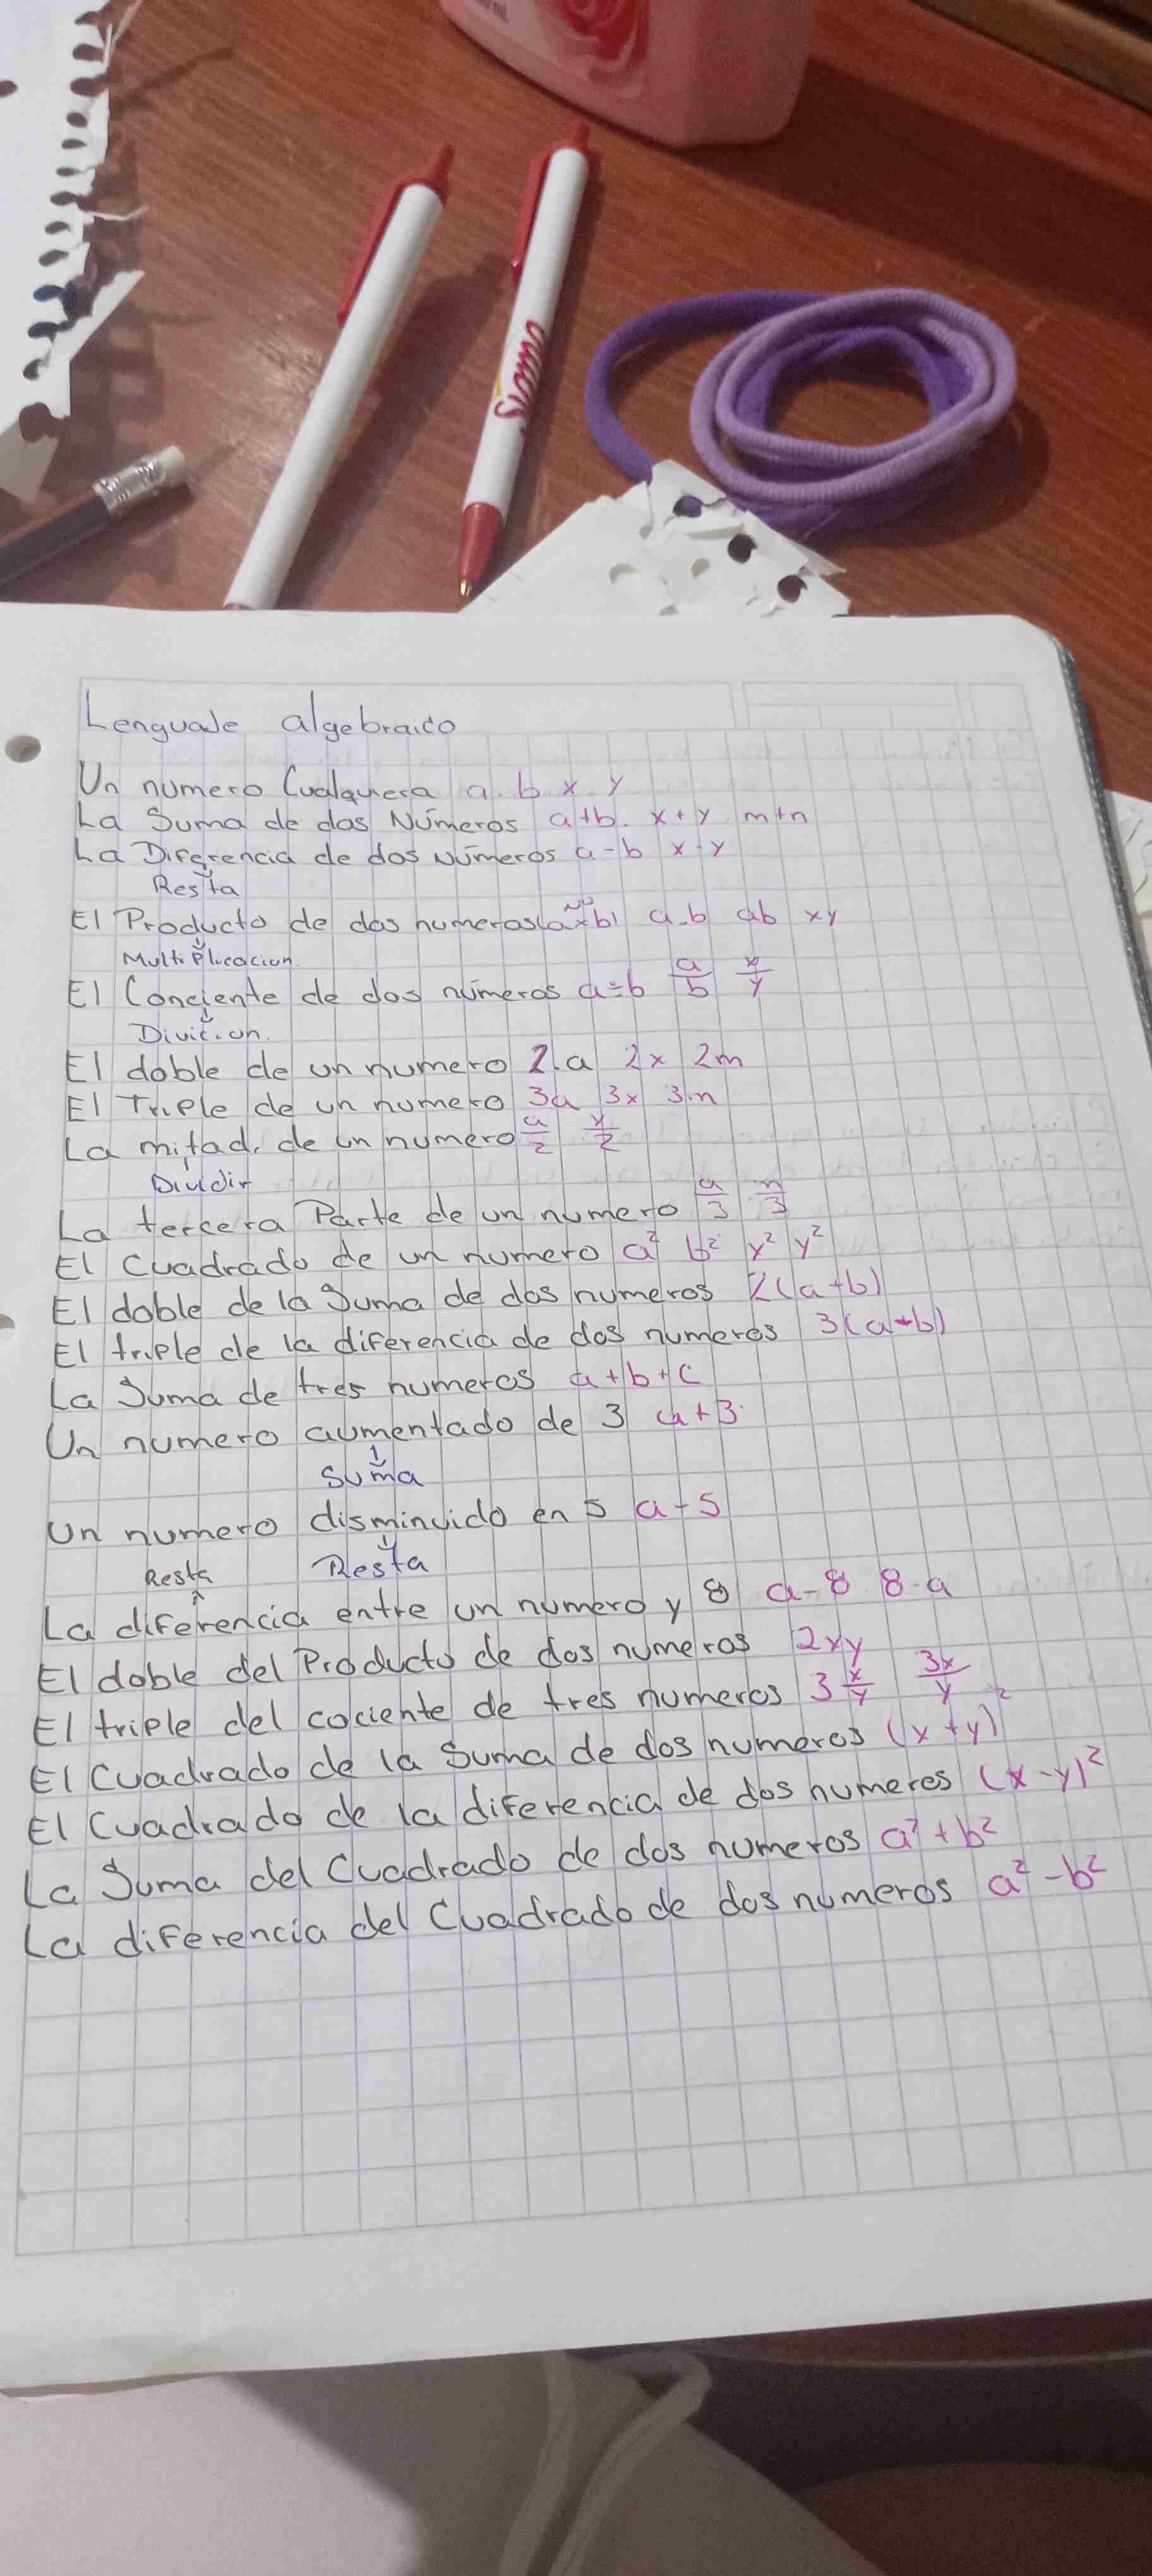 Simons
Lenguaje algebraico
Un numero Cualquiera a. b x y
La Suma de dos Números a+b. x+y m+n
La Diferencia de dos Números a-b x-y
Resta
El Producto de dos numeros (a×b) a.b ab xy
NO
Multiplicacion.
El Conciente de dos números a÷b a/b x/y
Divicion.
El doble de un numero 2.a 2x 2m
El Triple de un numero 3a 3x 3.n
La mitad. de un numero a/2 y/2
Dividir
La tercera Parte de un numero a/3 n/3
El Cuadrado de un numero a² b² x² y²
El doble de la Suma de dos numeros 2(a+b)
El triple de la diferencia de dos numeros 3(a-b)
La Suma de tres numeros a+b+c
Un numero aumentado de 3 a+3
Suma
Un numero disminuido en 5 a-5
Resta Resta
La diferencia entre un numero y 8 a-8 8-a
El doble del Producto de dos numeros 2xy
El triple del cociente de tres numeros 3 x/y 3x/y
El Cuadrado de la Suma de dos numeros (x+y)²
El Cuadrado de la diferencia de dos numeros (x-y)²
La Suma del Cuadrado de dos numeros a²+b²
La diferencia del Cuadrado de dos numeros a²-b²